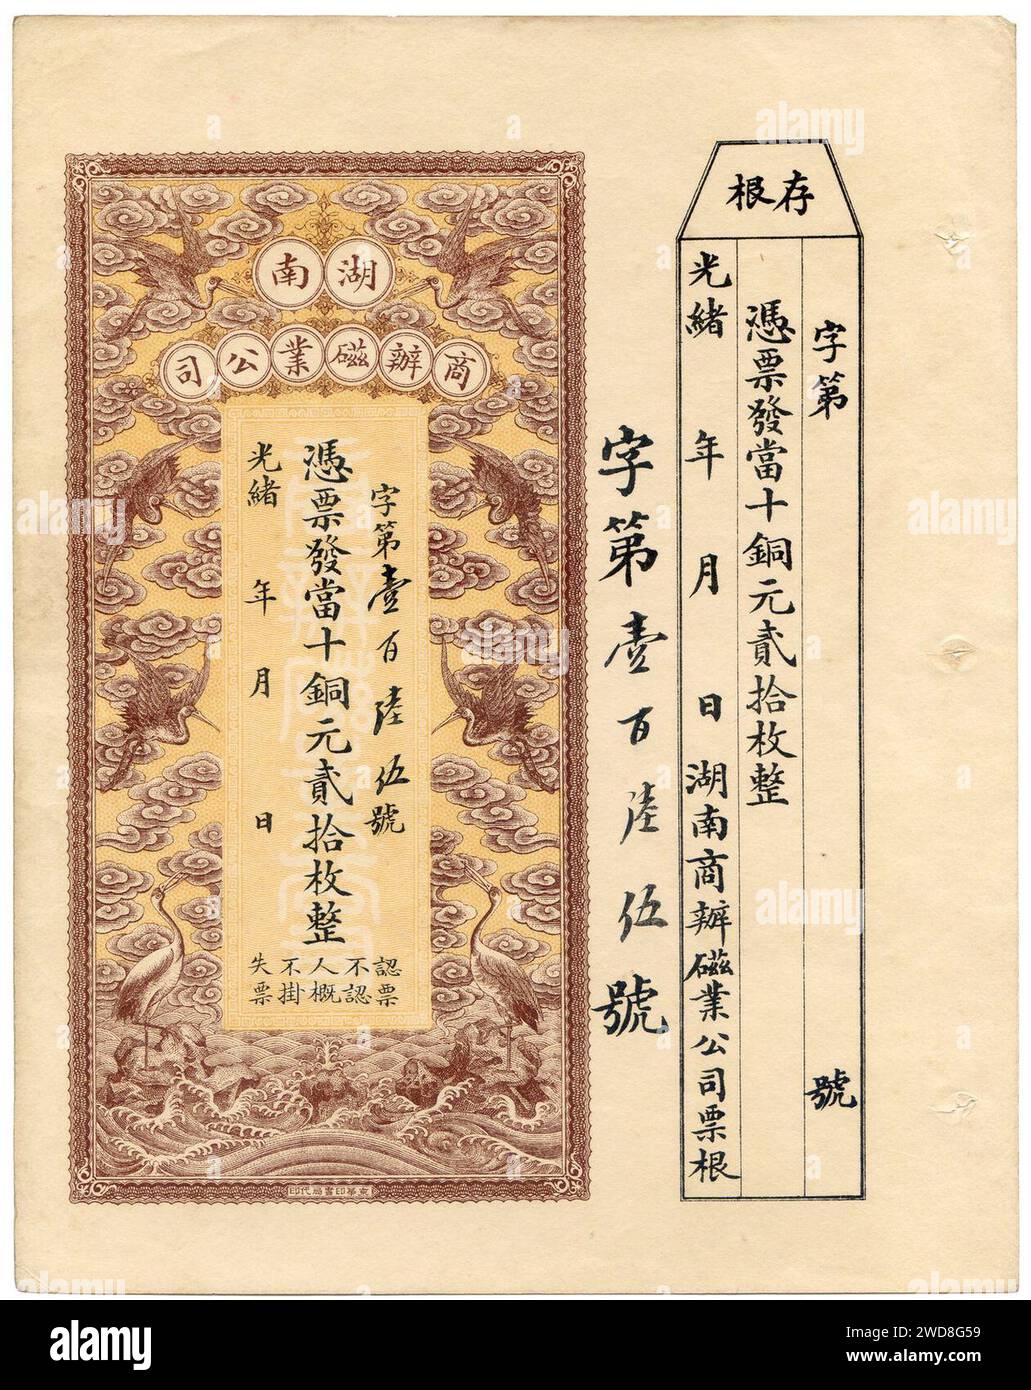 湖南
商辦磁業公司
字第壹百陸伍號
憑票發當十銅元貳拾枚整
光緒 年 月 日
認票不認人概不掛失票
字第壹百陸伍號
存根
字第 號
憑票發當十銅元貳拾枚整
光緒 年 月 日湖南商辦磁業公司票根
alamy
Image ID: 2WD8G59
www.alamy.com